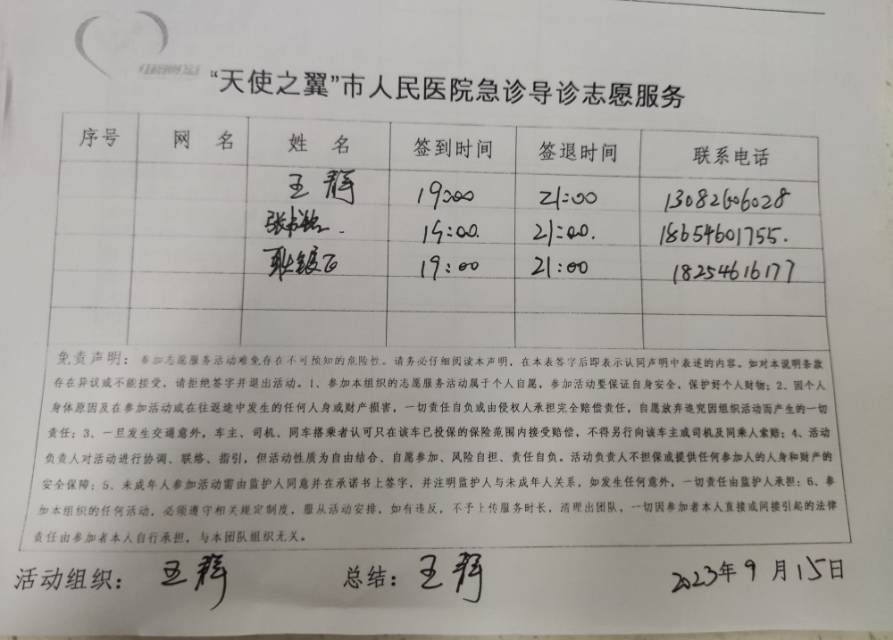 “天使之翼”市人民医院急诊导诊志愿服务
序号 网 名 姓 名 签到时间 签退时间 联系电话
王静 19:00 21:00 13082606028
19:00. 21:00. 18654601755.
19:00 21:00 18254616177
免责声明：参加志愿服务活动难免存在不可预知的危险性。请务必仔细阅读本声明，在本表签字后即表示认同声明中表述的内容。如对本说明条款
存在异议或不能接受，请拒绝签字并退出活动。1、参加本组织的志愿服务活动属于个人自愿，参加活动要保证自身安全，保护好个人财物；2、因个人
身体原因及在参加活动或在往返途中发生的任何人身或财产损害，一切责任自负或由侵权人承担完全赔偿责任，自愿放弃追究因组织活动而产生的一切
责任；3、一旦发生交通意外，车主、司机、同车搭乘者认可只在该车已投保的保险范围内接受赔偿，不得另行向该车主或司机及同乘人索赔；4、活动
负责人对活动进行协调、联络、指引，但活动性质为自由结合、自愿参加、风险自担、责任自负。活动负责人不担保或提供任何参加人的人身和财产的
安全保障；5、未成年人参加活动需由监护人同意并在承诺书上签字，并注明监护人与未成年人关系，如发生任何意外，一切责任由监护人承担；6、参
加本组织的任何活动，必须遵守相关规定制度，服从活动安排，如有违反，不予上传服务时长，清理出团队，一切因参加者本人直接或间接引起的法律
责任由参加者本人自行承担，与本团队组织无关。
活动组织： 王静 总结： 王静 2023年9月15日